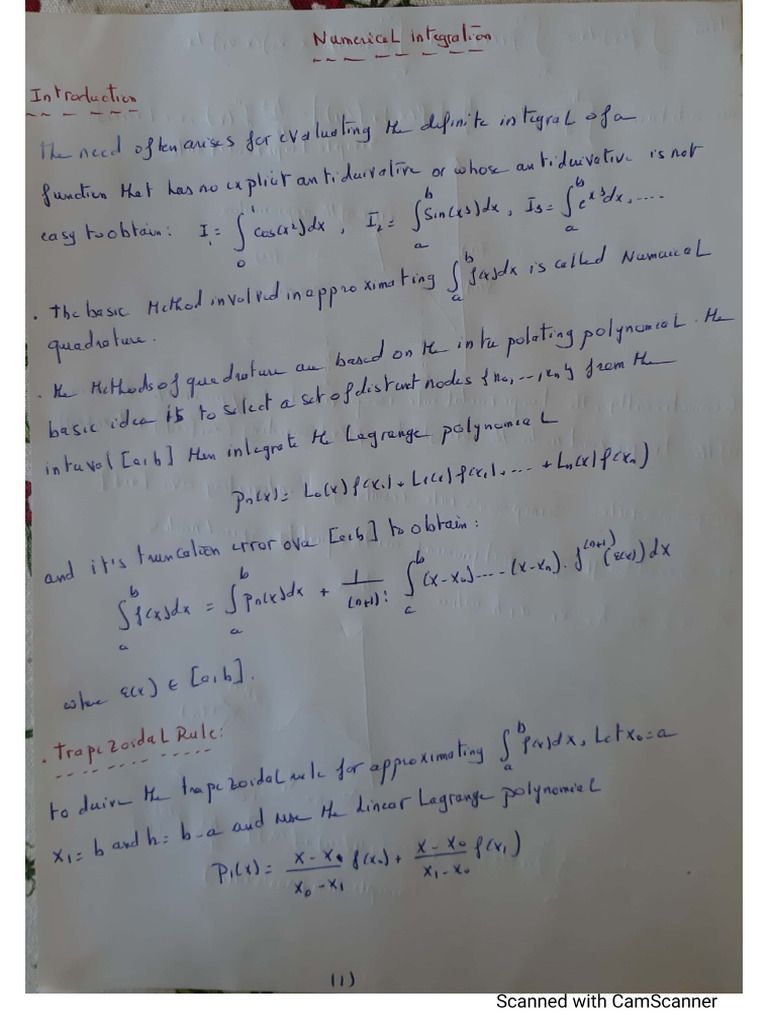 Numerical integration
Introduction
The need often arises for evaluating the definite integral of a
function that has no explicit antiderivative or whose antiderivative is not
easy to obtain: I₁ = ∫₀¹ cos(x²)dx, I₂ = ∫ₐᵇ Sin(x³)dx, I₃ = ∫ₐᵇ eˣ³dx, ....
. The basic Method involved in approximating ∫ₐᵇ f(x)dx is called Numerical
quadrature.
. The Methods of quadrature are based on the interpolating polynomial. The
basic idea is to select a set of distant nodes {x₀, ..., xₙ} from the
interval [a,b] then integrate the Lagrange polynomial
pₙ(x) = L₀(x) f(x₀) + L₁(x) f(x₁) + ... + Lₙ(x) f(xₙ)
and it's truncation error over [a,b] to obtain:
∫ₐᵇ f(x)dx = ∫ₐᵇ pₙ(x)dx + 1/(n+1)! ∫ₐᵇ (x-x₀)....(x-xₙ). f⁽ⁿ⁺¹⁾(ε(x))dx
where ε(x) ∈ [a,b].
. Trapezoidal Rule:
to derive the trapezoidal rule for approximating ∫ₐᵇ f(x)dx, Let x₀ = a
x₁ = b and h = b-a and use the Linear Lagrange polynomial
P₁(x) = (x-x₁)/(x₀-x₁) f(x₀) + (x-x₀)/(x₁-x₀) f(x₁)
(1)
Scanned with CamScanner